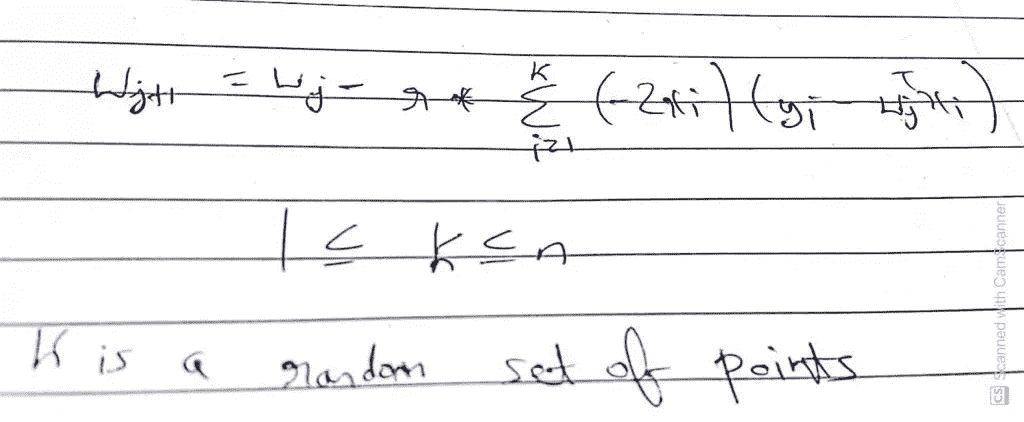 W_{j+1} = W_j - r * \sum_{i=1}^{K} (-2x_i) (y_i - W_j^T x_i)
1 ≤ k ≤ n
K is a random set of points
CS Scanned with CamScanner